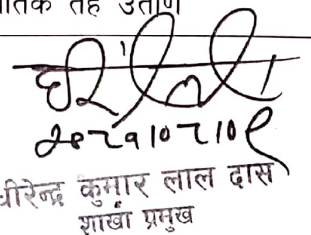 तह उत्तीर्ण
२०८१।०८।०९
धीरेन्द्र कुमार लाल दास
शाखा प्रमुख